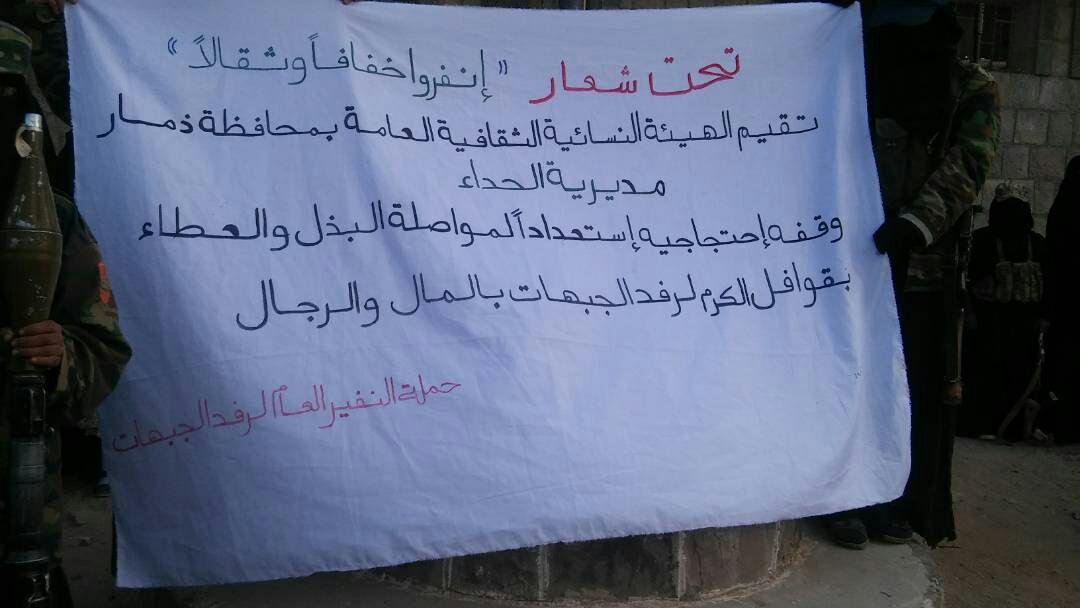 تحت شعار « إنفروا خفافاً وثقالاً »
تقيم الهيئة النسائية الثقافية العامة بمحافظة ذمار
مديرية الحداء
وقفه إحتجاجيه إستعداداً لمواصلة البذل والعطاء
بقوافل الكرم لرفد الجبهات بالمال والرجال
حملة النفير العام لرفد الجبهات